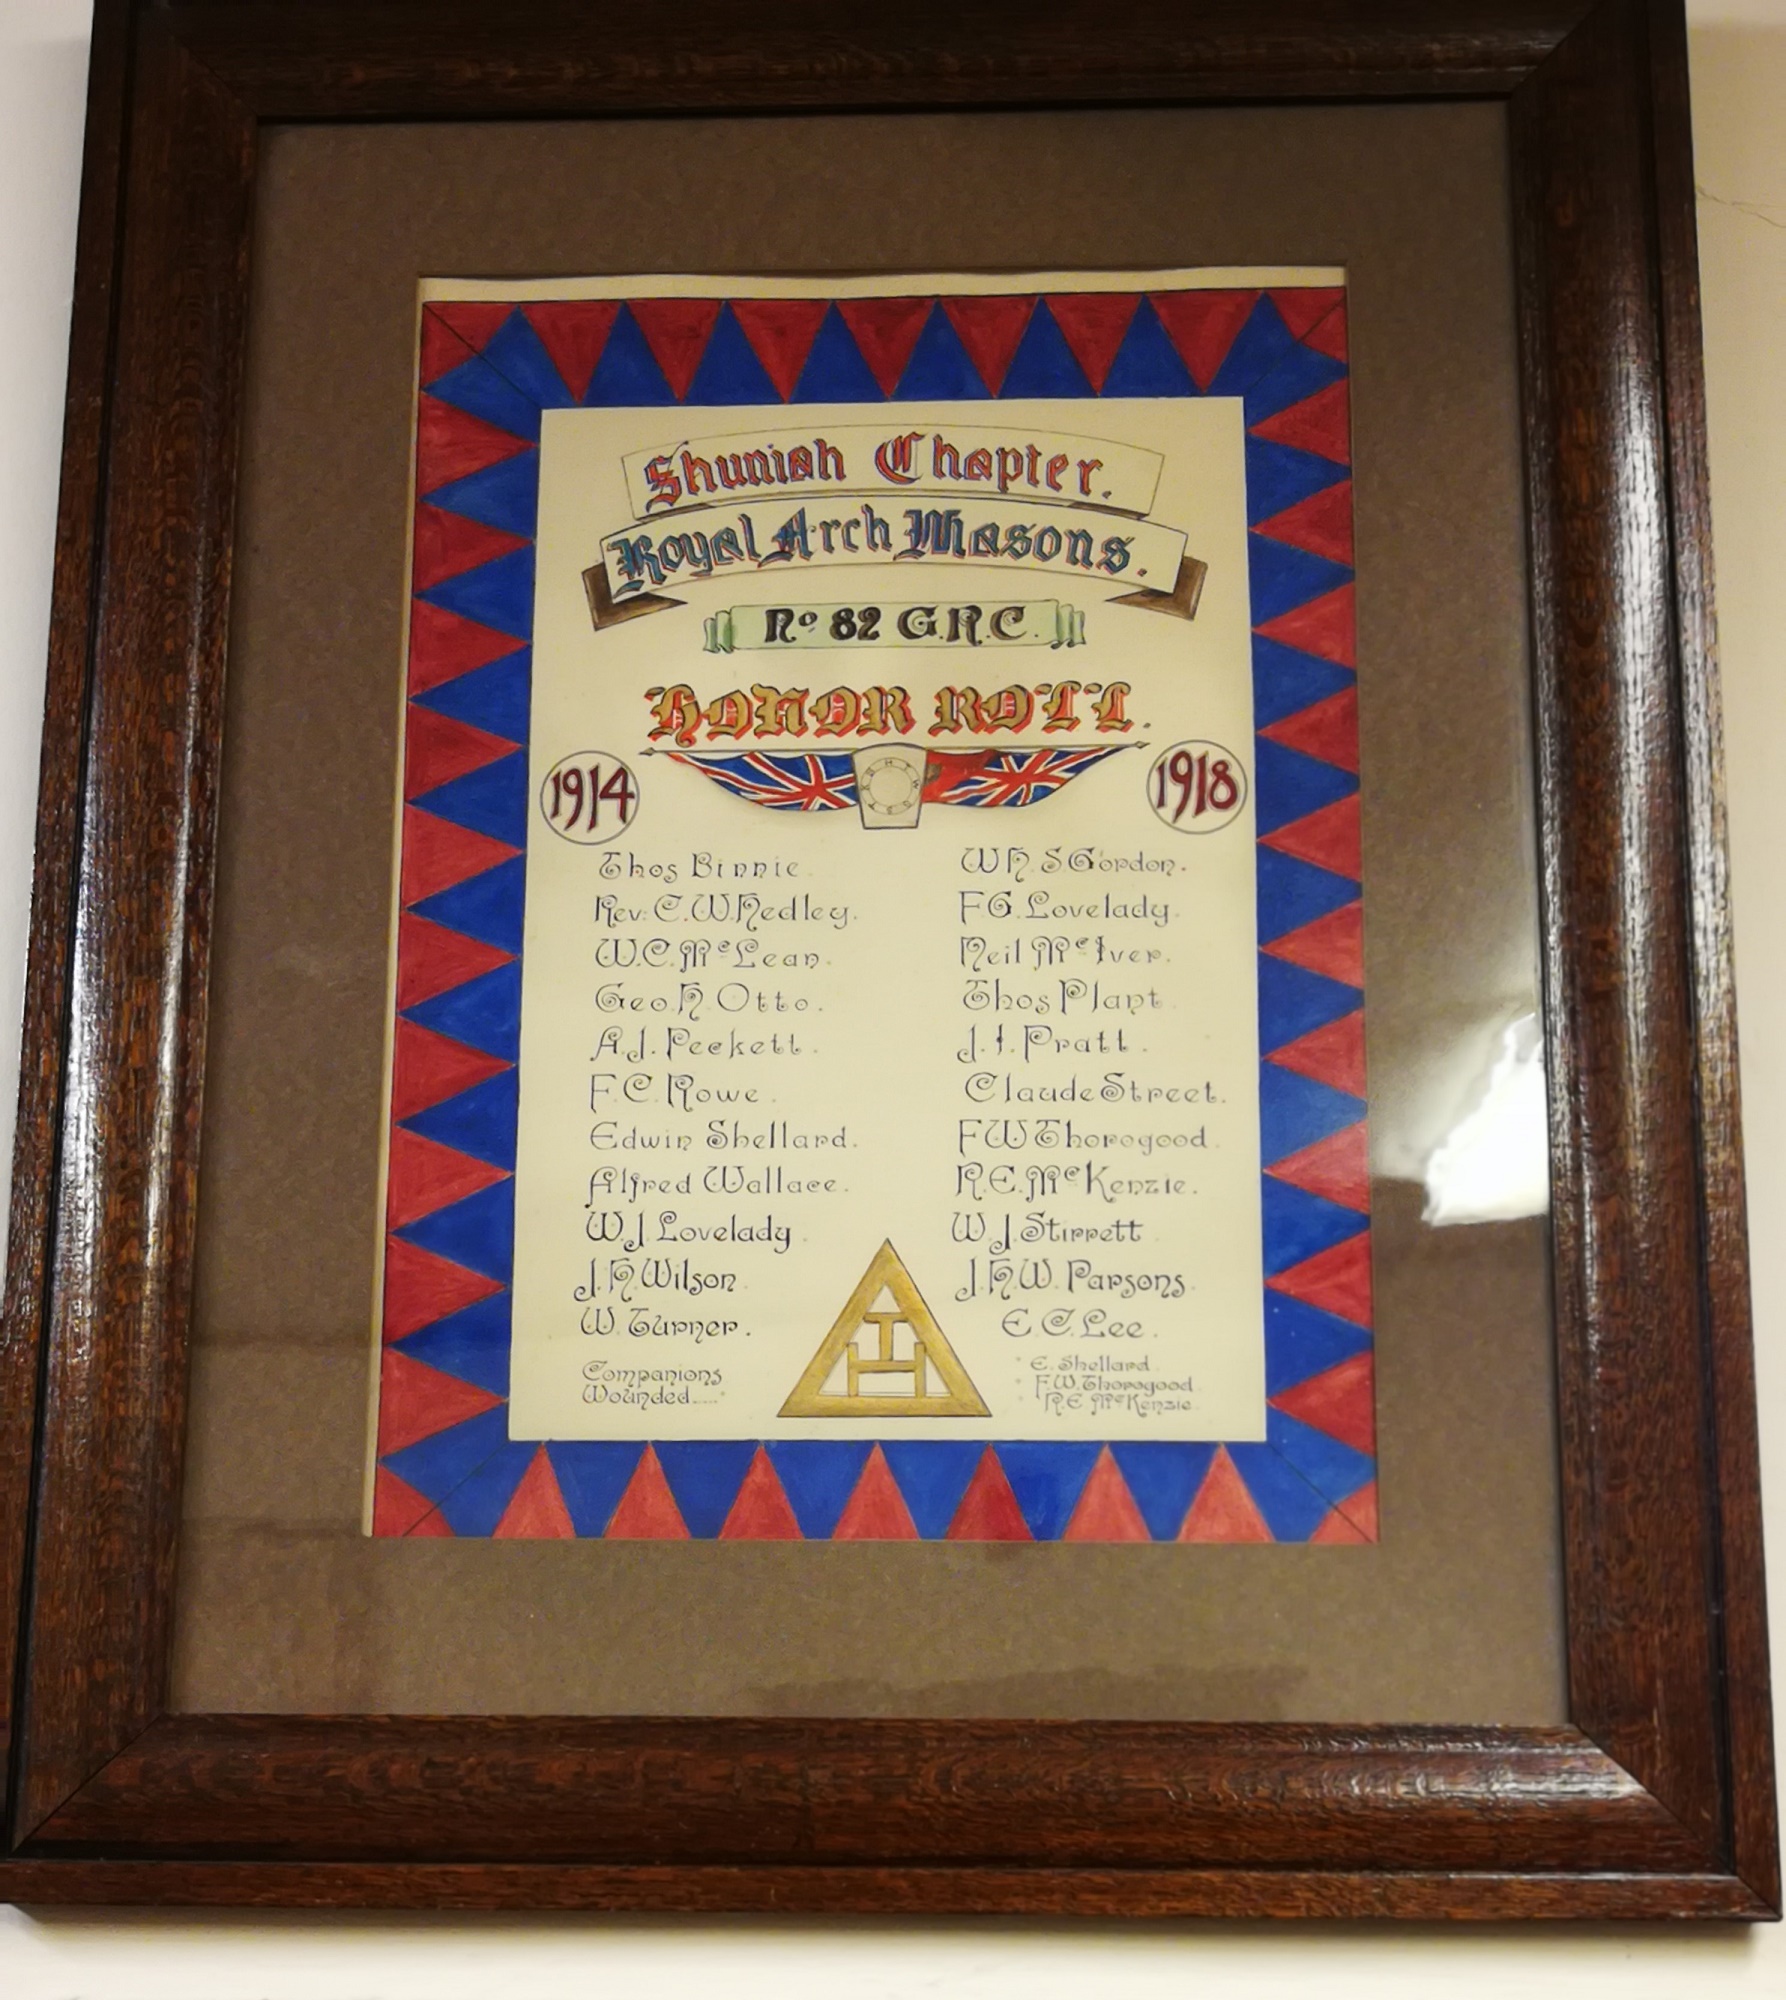 Shuniah Chapter.
Royal Arch Masons.
No 82 G.R.C.
HONOR ROLL.
1914
H T W S S T K S
1918
Thos Binnie.
Rev: C.W. Hedley.
W.C. McLean.
Geo. H. Otto.
A.J. Peckett.
F.C. Rowe.
Edwin Shellard.
Alfred Wallace.
W.J. Lovelady.
J.H. Wilson.
W. Turner.
W H S Gordon.
F G. Lovelady.
Neil McIver.
Thos Plant.
J.I. Pratt.
Claude Street.
F W Thorogood.
R.E. McKenzie.
W.J. Stirrett
J.H.W. Parsons.
E.C. Lee.
Companions
Wounded.....
" E. Shellard.
" F.W. Thorogood.
" R.E. McKenzie.